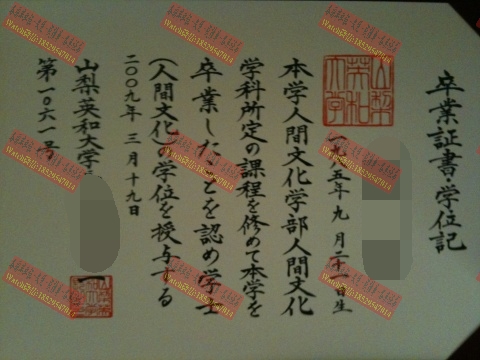 卒業証書・学位記
山梨英和大学
一九八五年九月二十一日生
本学人間文化学部人間文化
学科所定の課程を修めて本学を
卒業したことを認め学士
(人間文化)の学位を授与する
二〇〇九年三月十九日
山梨英和大学
第一〇六一号